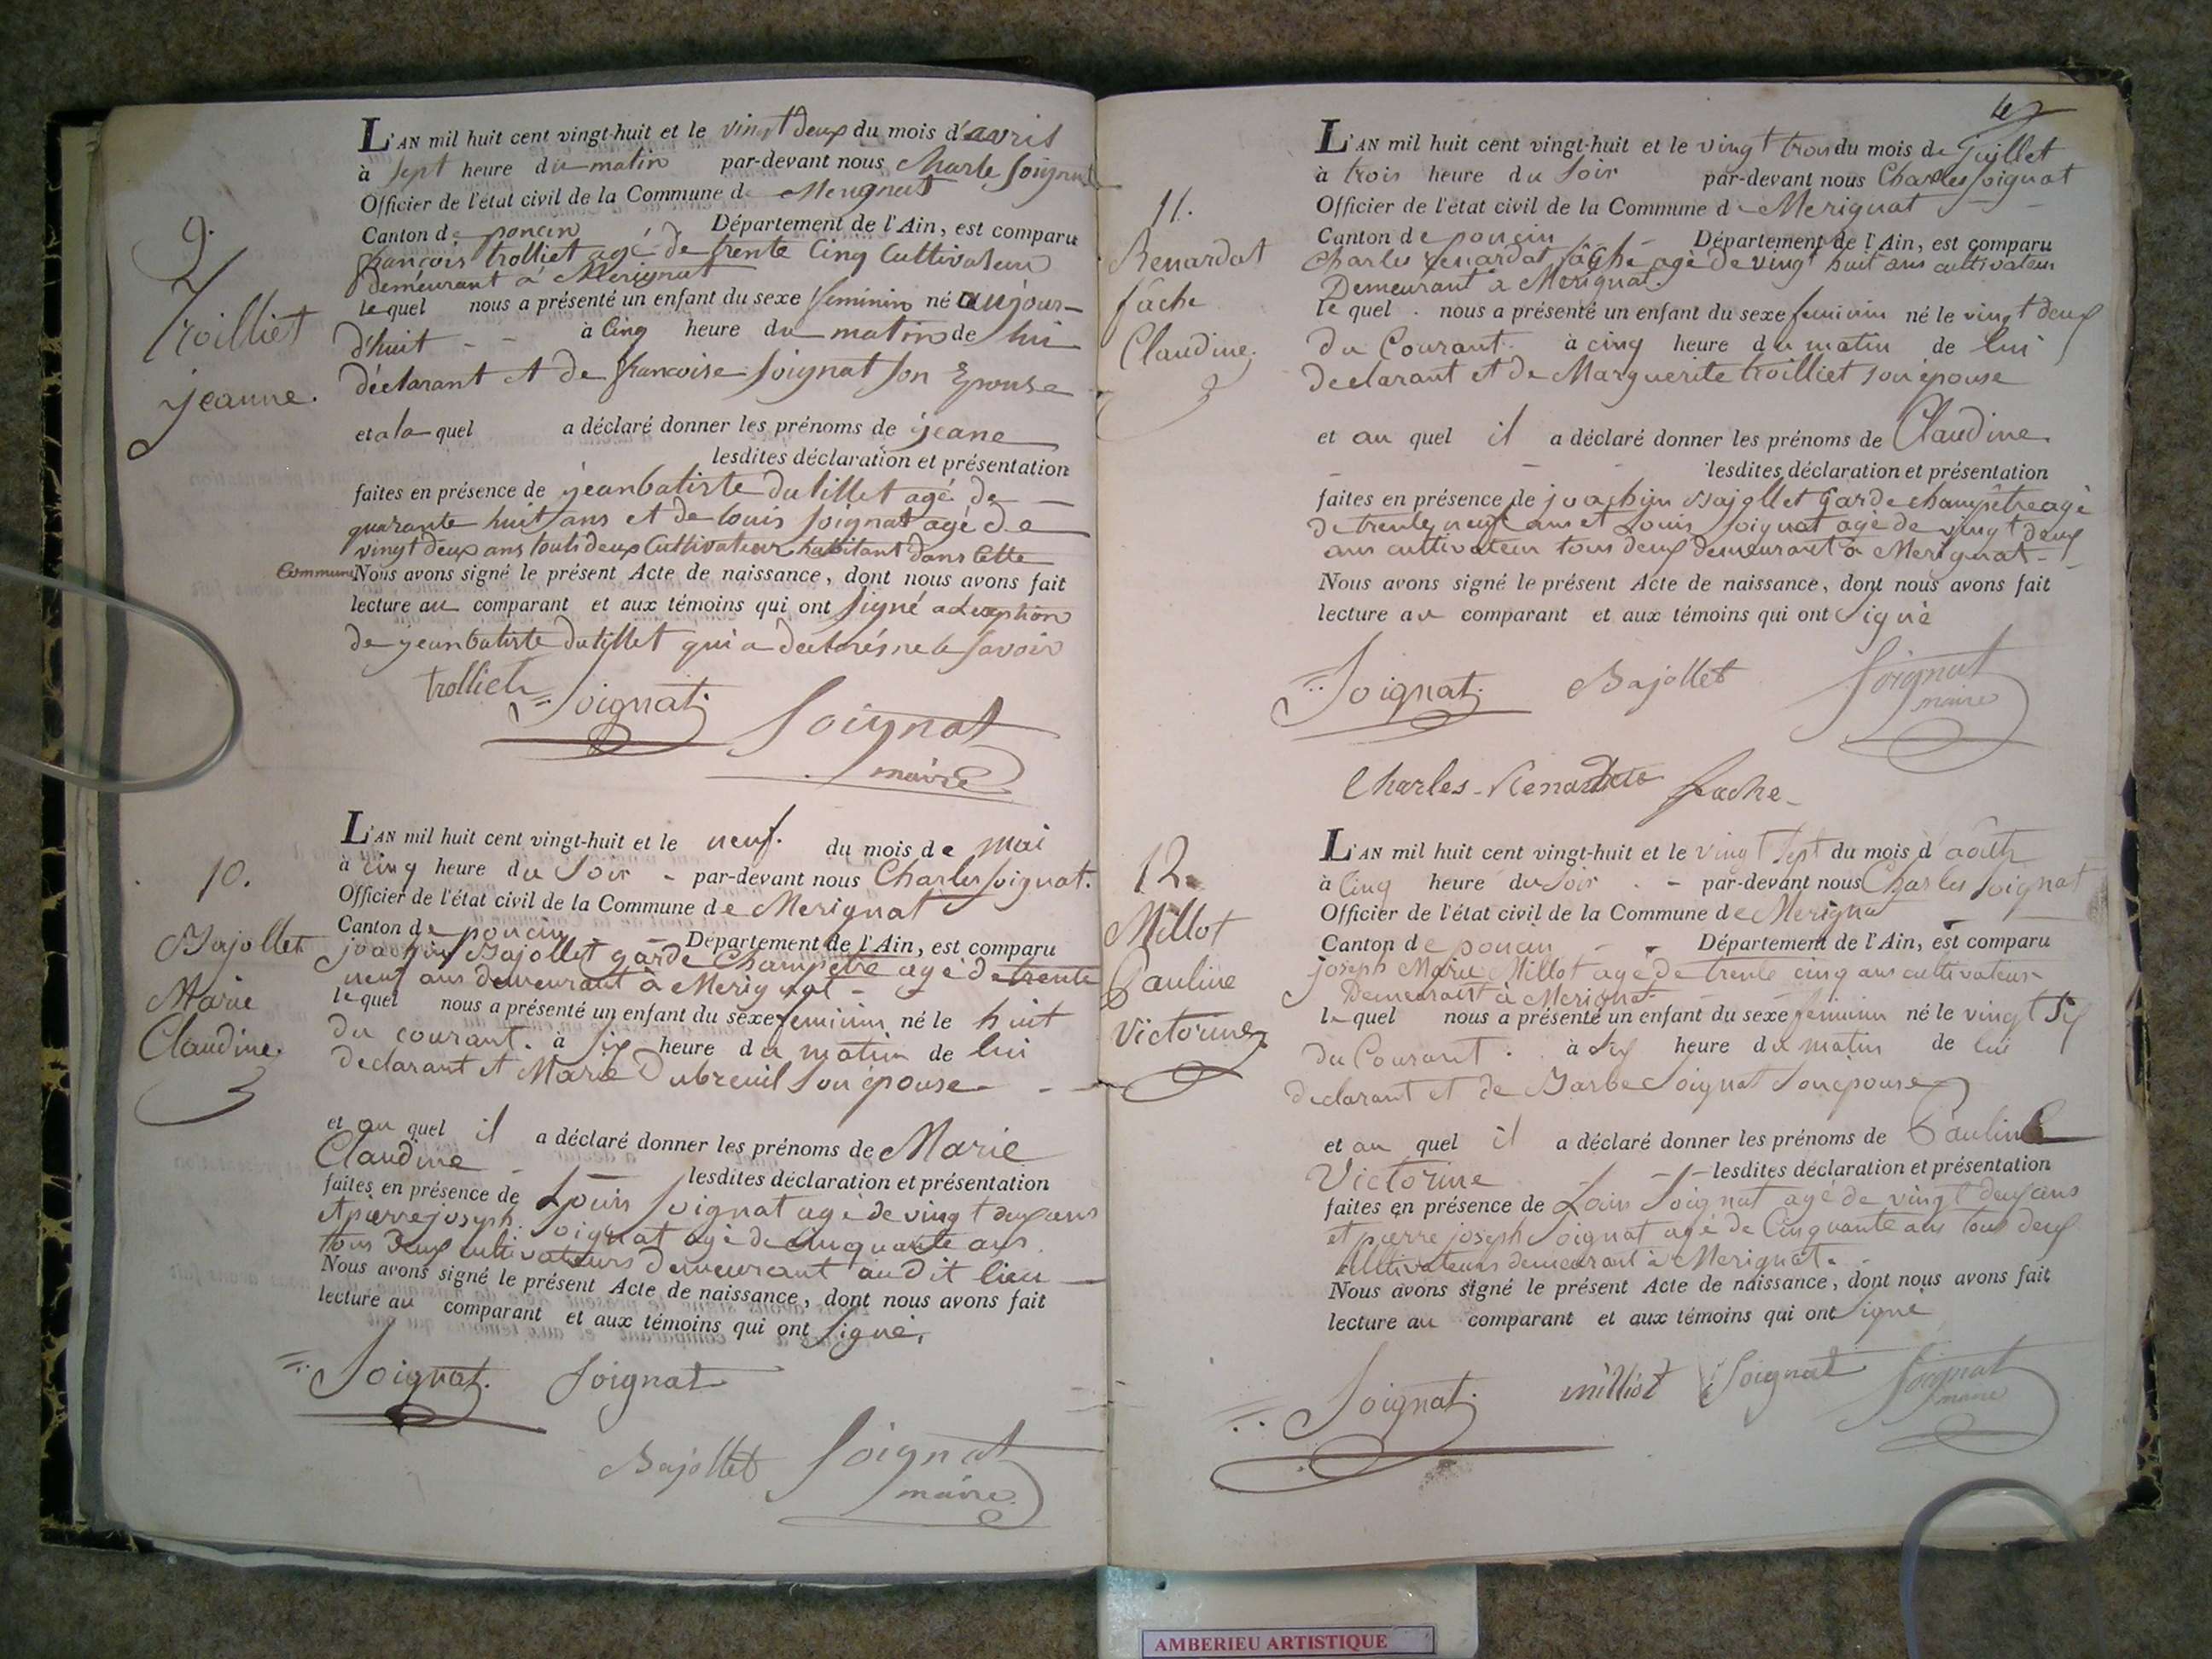 9.
Troilliet
jeanne.
L'AN mil huit cent vingt-huit et le vingt deux du mois d'avril
à sept heure du matin par-devant nous Charle Soignat
Officier de l'état civil de la Commune de Merignat
Canton de poncin Département de l'Ain, est comparu
françois trolliet agé de trente Cinq Cultivateur
demeurant a Merignat
lequel nous a présenté un enfant du sexe feminin né aujour-
d'huit à Cinq heure du matin de lui
déclarant et de francoise Soignat Son Epouse
et a la quel a déclaré donner les prénoms de jeane
lesdites déclaration et présentation
faites en présence de jeanbatiste dutillet agé de
quarante huit ans et de louis Soignat agé de
vingt deux ans touts deux Cultivateur habitant dans Cette
Commune Nous avons signé le présent Acte de naissance, dont nous avons fait
lecture au comparant et aux témoins qui ont Signé a L'exeption
de jeanbatiste dutillet qui a declarés ne le Savoir
trolliet Soignat Soignat
maire
10.
Bajollet
Marie
Claudine.
L'AN mil huit cent vingt-huit et le neuf. du mois de mai
à cinq heure du Soir par-devant nous Charles Soignat.
Officier de l'état civil de la Commune de Merignat
Canton de poncin Département de l'Ain, est comparu
joachim Bajollet garde Champetre agé de trente
neuf ans demeurant à Merignat
lequel nous a présenté un enfant du sexe feminin né le huit
du courant. à six heure du matin de lui
declarant et Marie Dubreuil Son épouse
et au quel il a déclaré donner les prénoms de Marie
Claudine lesdites déclaration et présentation
faites en présence de Louis Soignat agé de vingt deux ans
et pierre joseph Soignat agé de Cinquante ans
tous deux cultivateurs demeurant audit lieu
Nous avons signé le présent Acte de naissance, dont nous avons fait
lecture au comparant et aux témoins qui ont Signé,
Soignat. Soignat
Bajollet Soignat
maire
11.
Renardat
fache
Claudine.
L'AN mil huit cent vingt-huit et le vingt trois du mois de juillet
à trois heure du Soir par-devant nous Charles Soignat
Officier de l'état civil de la Commune d Merignat
Canton de poncin Département de l'Ain, est comparu
Charles renardat fâche agé de vingt huit ans cultivateur
Demeurant à Merignat.
lequel nous a présenté un enfant du sexe feminin né le vingt deux
du Courant à cinq heure du matin de lui
declarant et de Marguerite troilliet son épouse
et au quel il a déclaré donner les prénoms de Claudine
lesdites déclaration et présentation
faites en présence de joachim Bajollet Garde champêtre agé
de trente neuf ans et Louis Soignat agé de vingt deux
ans cultivateur tous deux demeurant à Merignat
Nous avons signé le présent Acte de naissance, dont nous avons fait
lecture au comparant et aux témoins qui ont Signé
Soignat. Bajollet Soignat
maire
Charles Renardat fache
12.
Millot
Pauline
Victorine
L'AN mil huit cent vingt-huit et le vingt Sept du mois d'août
à Cinq heure du Soir par-devant nous Charles Soignat
Officier de l'état civil de la Commune de Merigna
Canton de poncin Département de l'Ain, est comparu
joseph Marie Millot agé de trente cinq ans cultivateur
Demeurant à Merignat
lequel nous a présenté un enfant du sexe feminin né le vingt Six
du Courant. à Six heure du matin de lui
declarant et de Barbe Soignat Son epouse
et au quel il a déclaré donner les prénoms de Pauline
Victorine lesdites déclaration et présentation
faites en présence de Louis Soignat agé de vingt deux ans
et pierre joseph Soignat agé de Cinquante ans tous deux
Cultivateurs demeurant à Merignat.
Nous avons signé le présent Acte de naissance, dont nous avons fait
lecture au comparant et aux témoins qui ont Signé
Soignat. milliot Soignat Soignat
maire
AMBERIEU ARTISTIQUE